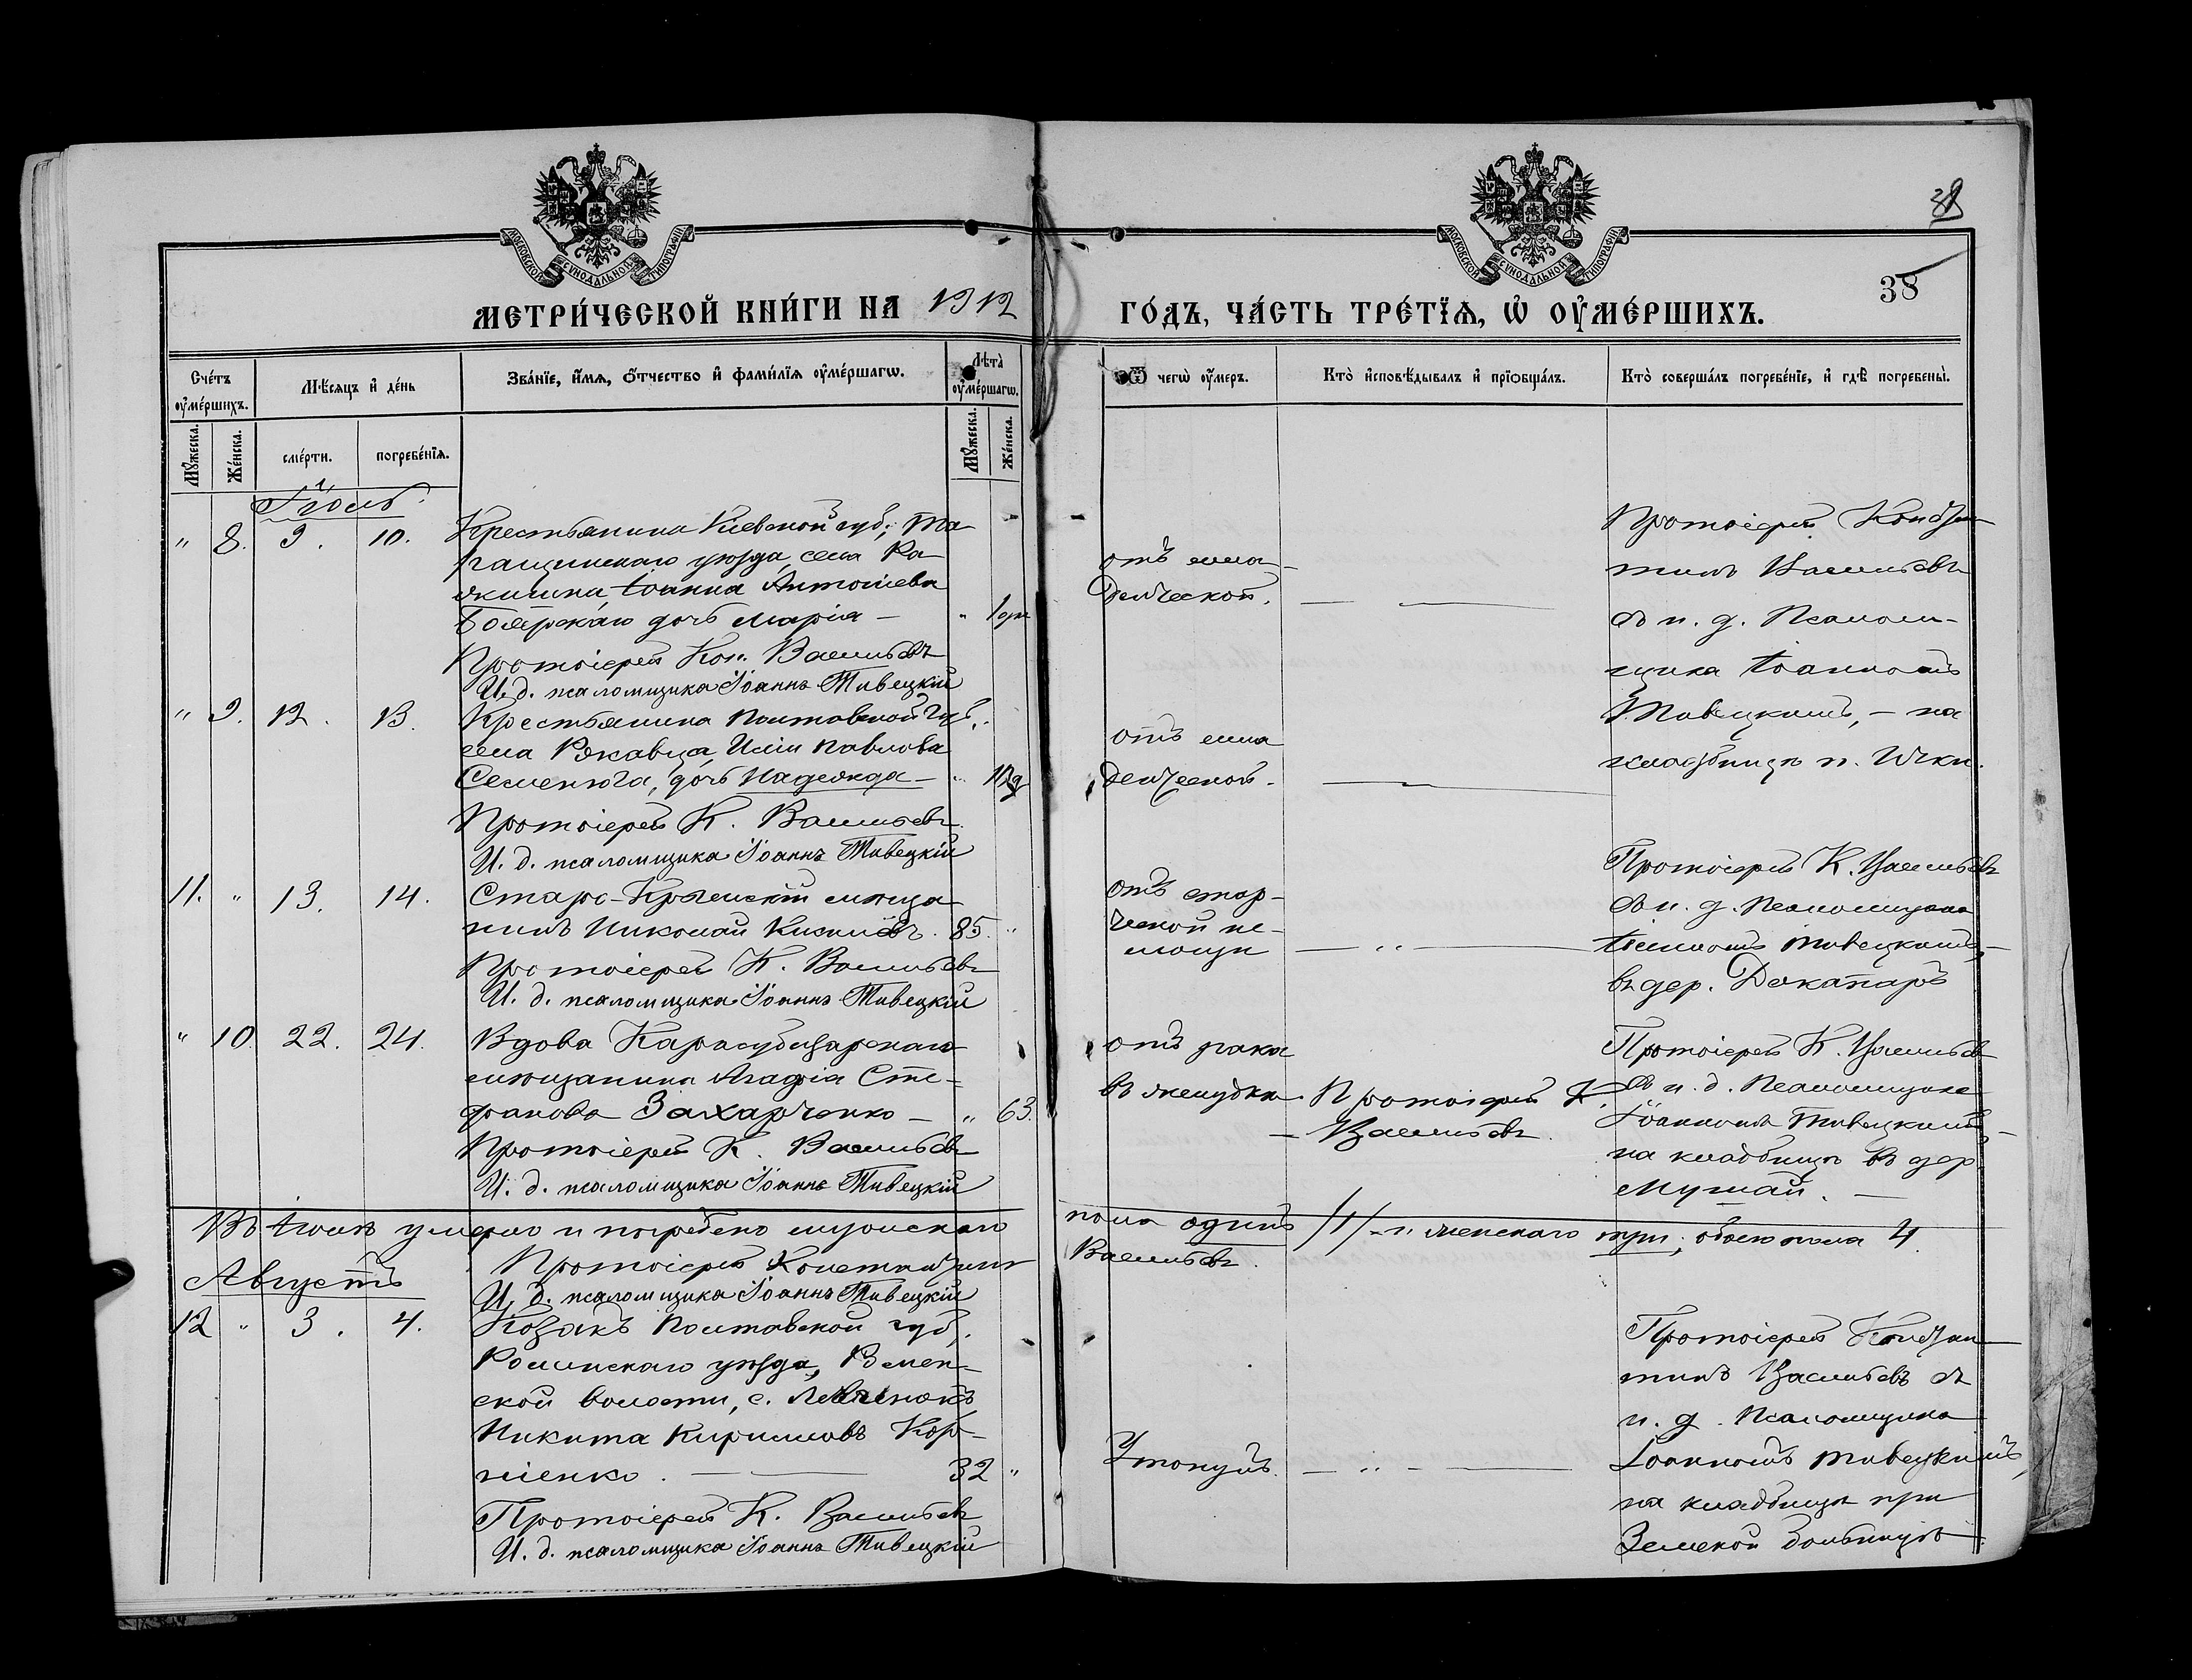 МОСКОВСКОЙ СѴНОДАЛЬНОЙ ТИПОГРАФІИ
МОСКОВСКОЙ СѴНОДАЛЬНОЙ ТИПОГРАФІИ
38
38
МЕТРИ́ЧЕСКОЙ КНИ́ГИ НА 1912 ГО́ДЪ, ЧА́СТЬ ТРЕ́ТЇѦ, Ѡ҆ ОУ҆МЕ́РШИХЪ.
Сче́тъ оу҆ме́ршихъ.
Мѣ́сѧцъ и҆ де́нь
Зва́нїе, и҆́мѧ, ѻ҆́тчество и҆ фами́лїѧ оу҆ме́ршагѡ.
Лѣта̀ оу҆ме́ршагѡ.
Ѿ чегѡ̀ оу҆́меръ.
Кто̀ и҆сповѣ́дывалъ и҆ прїѡбща́лъ.
Кто̀ соверша́лъ погребе́нїе, и҆ гдѣ̀ погребены̀.
Мꙋ́жеска.
Же́нска.
сме́рти.
погребе́нїѧ.
Мꙋ́жеска.
Же́нска.
Іюль.
" 8. 9. 10. Крестьянина Кіевской губ., Та-
ращинскаго уѣзда, села
Іоанна Антоніева
Боярскаго дочь Марія — "
Протоіерей Кон. Васильевъ
И. д. псаломщика Іоаннъ Тивецкій
отъ мла-
денческой. — —
Протоіерей Констан-
тинъ Васильевъ
съ и. д. псалом-
щика Іоанномъ
Тивецкимъ, — на
кладбищѣ п. Ички.
" 9. 12. 13. Крестьянина Полтавской губ.
села Иліи Павлова
Семенюга, дочь Надежда —
Протоіерей К. Васильевъ.
И. д. псаломщика Іоаннъ Тивецкій
отъ мла
денческой. —
11. " 13. 14. Старо-Крымскій мѣща-
нинъ Николай 85. "
Протоіерей К. Васильевъ
И. д. псаломщика Іоаннъ Тивецкій
отъ стар-
ческой не-
мощи — " —
Протоіерей К. Васильевъ
съ и. д. псаломщика
Іоанномъ Тивецкимъ, —
въ дер.
" 10. 22. 24. Вдова Карасубазарскаго
мѣщанина Агафія Сте-
фанова Захарченко — " 63.
Протоіерей К. Васильевъ
И. д. псаломщика Іоаннъ Тивецкій
отъ рака
въ желудкѣ.
Протоіерей К.
— Васильевъ.
Протоіерей К. Васильевъ
съ и. д. псаломщика
Іоанномъ Тивецкимъ, —
на кладбищѣ въ дер.
—
Въ Іюлѣ умерло и погребено мужскаго пола одинъ /1/ — и женскаго три; обоего пола 4.
Протоіерей Константинъ Васильевъ.
И. д. псаломщика Іоаннъ Тивецкій
Августъ
12 " 3. 4. Козакъ Полтавской губ.
Роменскаго уѣзда,
ской волости, с.
Никита Кирилловъ Кор-
ніенко. — — 32 "
Протоіерей К. Васильевъ
И. д. псаломщика Іоаннъ Тивецкій
Утонулъ. — " —
Протоіерей Констан
тинъ Васильевъ съ
и. д. псаломщика
Іоанномъ Тивецкимъ,
на кладбищѣ при
Земской больницѣ.